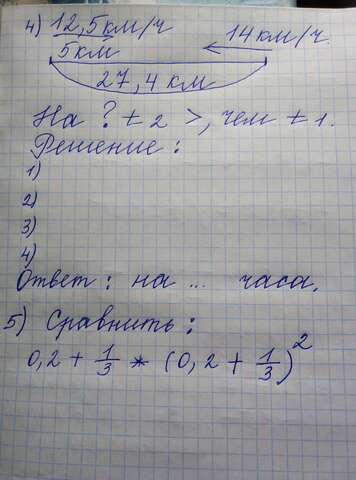 4) 12,5 км/ч 14 км/ч.
5 км
27,4 км
На ? t 2 >, чем t 1.
Решение:
1)
2)
3)
4)
Ответ: на ... часа.
5) Сравнить:
0,2 + 1/3 * (0,2 + 1/3)²